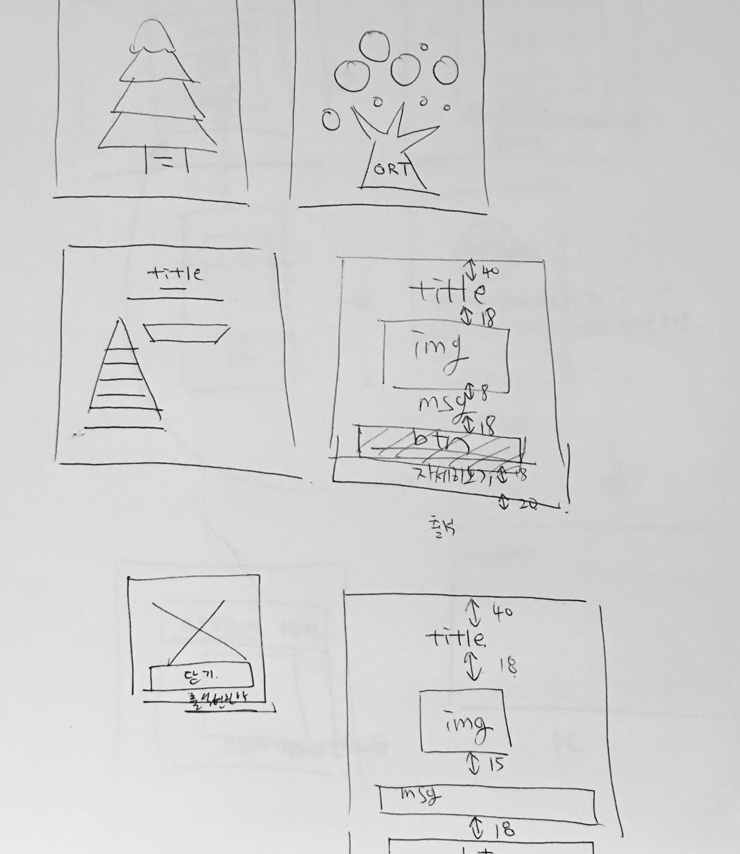 ORT
title
40
title
18
img
8
msg
18
btn
자세히보기 18
20
출석
닫기
40
title
18
img
15
msg
18